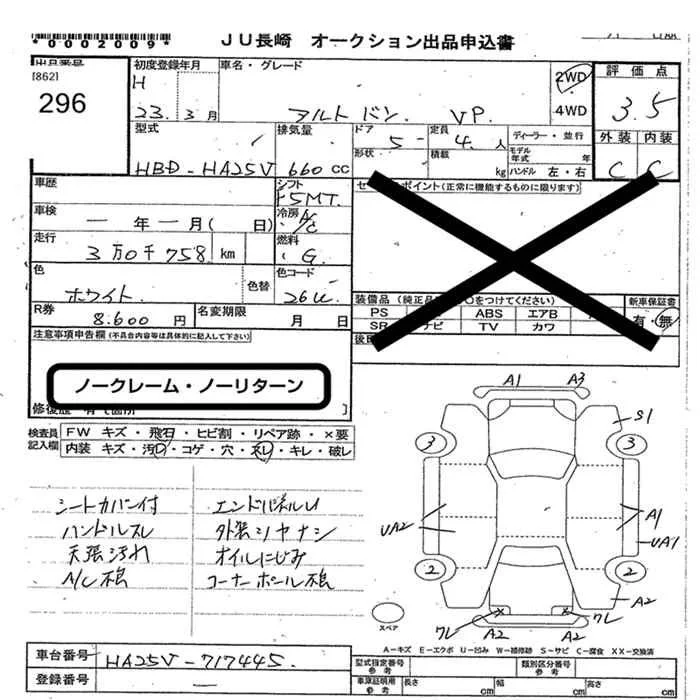 *0002009* JU長崎 オークション出品申込書
出品番号 初度登録年月 車名・グレード 2WD 評価点
[862] H 4WD
296 23. 3月 アルト バン. VP. 3.5
型式 排気量 ドア 5 - 定員 4.人 ディーラー・並行 外装 内装
形状 積載 kg モデル年式 年
HBD-HA25V 660cc ハンドル 左・右 C C
車歴 シフト F5MT. セールスポイント(正常に機能するものに限ります)
車検 一 年 一 月( 日) 冷房 A/C
走行 3万0千758 km 燃料 G.
色 色替 色コード
ホワイト. 26U. 装備品 新車保証書
R券 8.600円 名変期限 月 日 PS ABS エアB 有・無
注意事項申告欄(不具合内容等は具体的に記入して下さい) SR ナビ TV カワ
ノークレーム・ノーリターン
修復歴 有〔箇所 〕
検査員記入欄 FW キズ・飛石・ヒビ割・リペア跡・×要
内装 キズ・汚D・コゲ・穴・ネジ・キレ・破レ
A1 A3
S1
3 3
シートカバー付 エンドパネルU
ハンドルスレ 外装シヤナシ
天張汚れ オイルにじみ
A/C不良 コーナーポール不良
UA2 A1
UA1
2 2
A2
ワレ ワレ
A2 A2
スペア
A-キズ E-エクボ U-凹み W-補修跡 S-サビ C-腐食 XX-交換済
車台番号 HA25V-717445. 型式指定番号 参考 類別区分番号 参考
登録番号 一 車庫証明用 参考 長さ cm 幅 cm 高さ cm